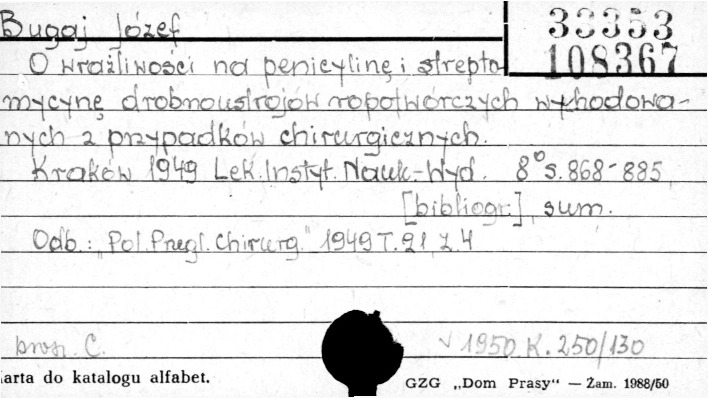 Bugaj Józef
33353
108367
O wrażliwości na penicylinę i strepto-
mycynę drobnoustrojów ropotwórczych wyhodowa-
nych z przypadków chirurgicznych.
Kraków 1949 Lek. Instyt. Nauk.-Wyd. 8° s. 868-885
[bibliogr.], sum.
Odb.: "Pol. Przegl. Chirurg." 1949 T. 21 z. 4
brosz. C.
√ 1950 K. 250/130
arta do katalogu alfabet.
GZG „Dom Prasy" — Zam. 1988/50